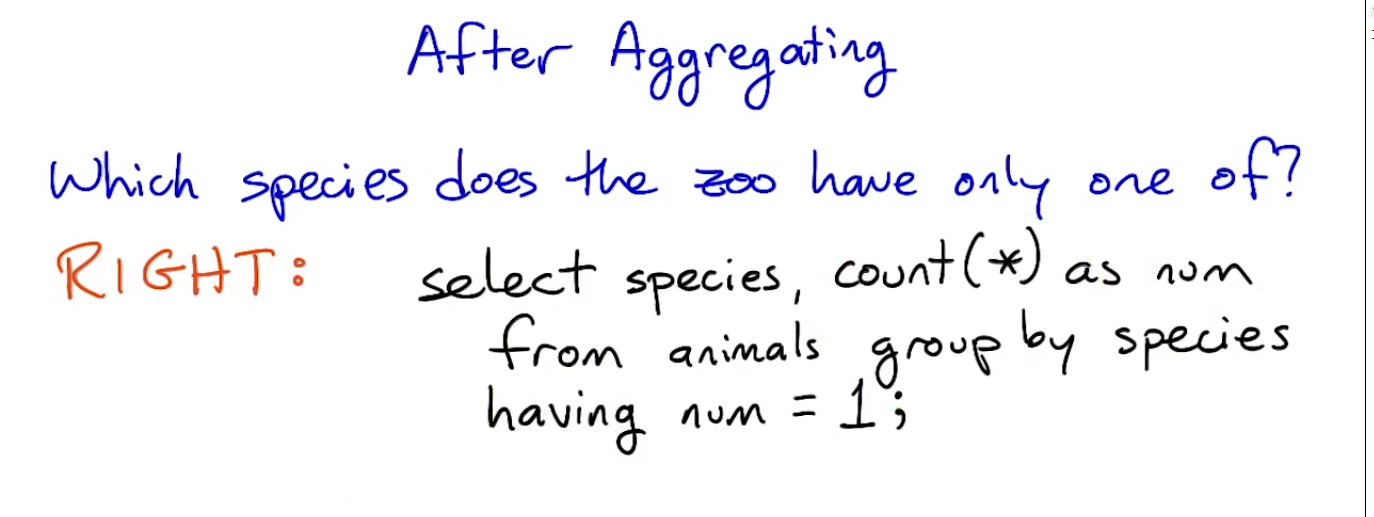 After Aggregating
Which species does the zoo have only one of?
RIGHT: select species, count(*) as num
from animals group by species
having num = 1;